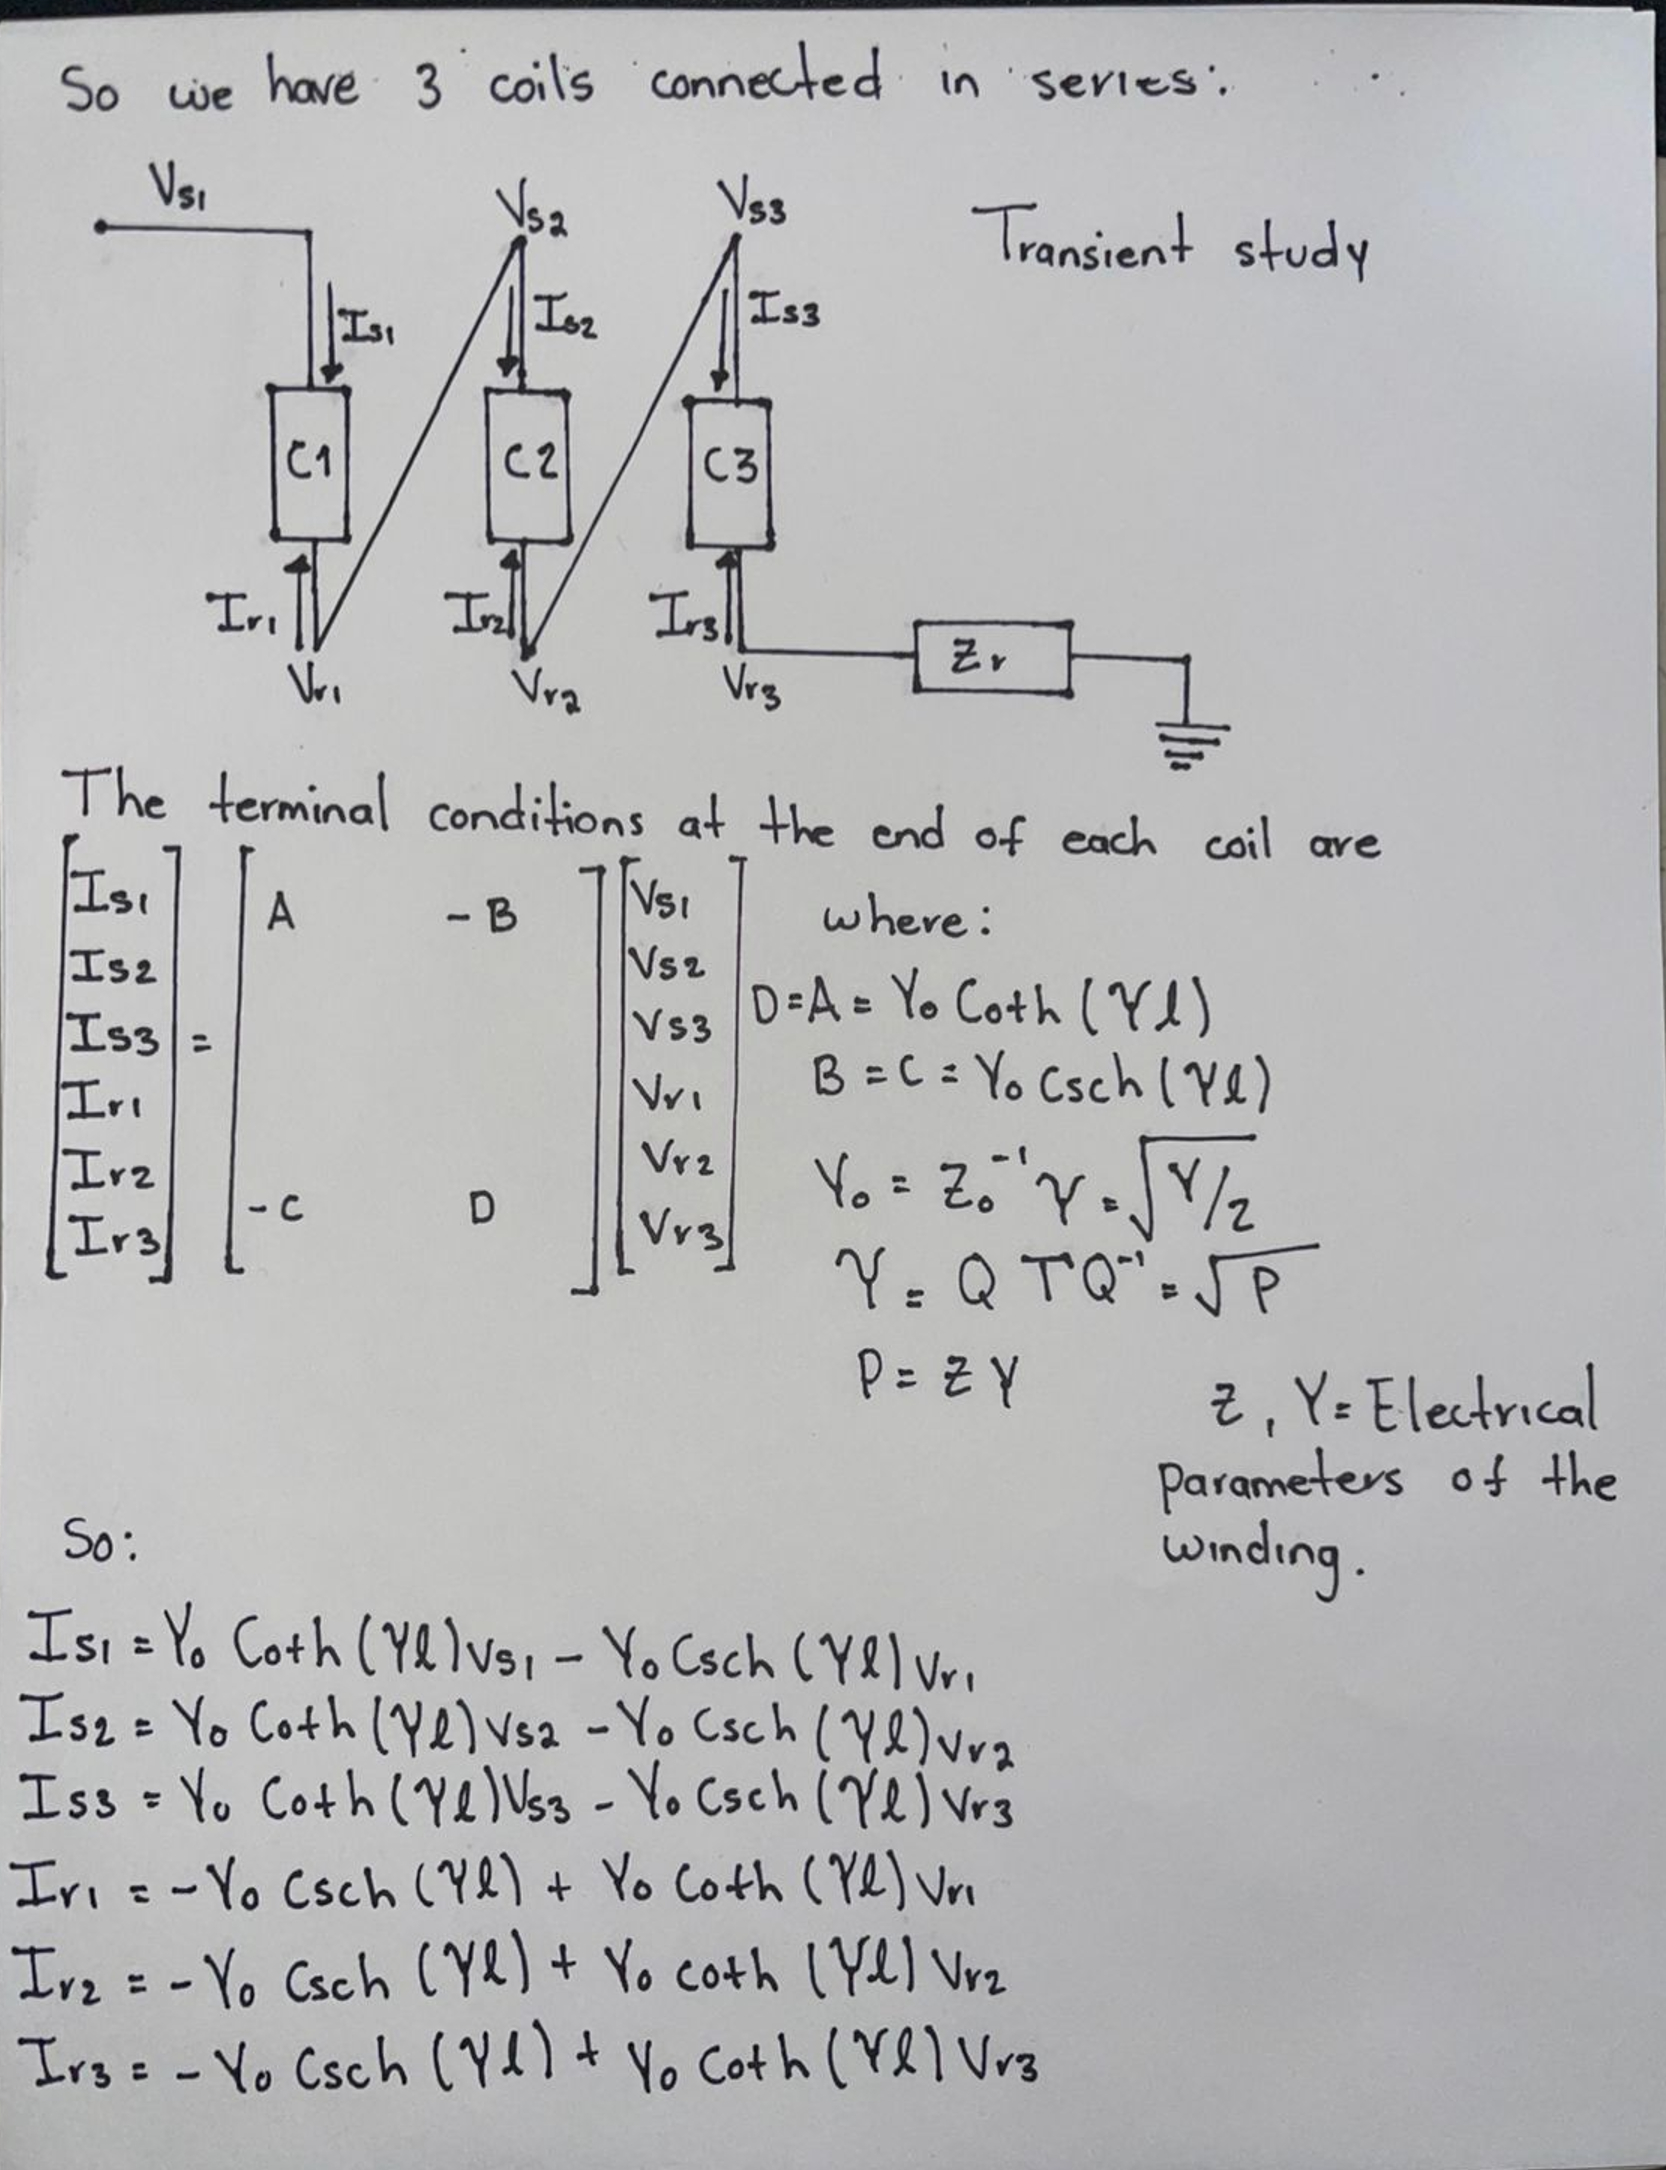 So we have 3 coils connected in series:
Vs1
Vs2
Vs3
Transient study
Is1
Is2
Is3
C1
C2
C3
Ir1
Ir2
Ir3
Zr
Vr1
Vr2
Vr3
The terminal conditions at the end of each coil are
[Is1 Is2 Is3 Ir1 Ir2 Ir3] = [A -B -C D] [Vs1 Vs2 Vs3 Vr1 Vr2 Vr3]
where:
D=A= Yo Coth (γl)
B = C = Yo Csch (γl)
Yo = Zo⁻¹ γ = √Y/2
γ = Q T Q⁻¹ = √P
P = ZY
Z, Y= Electrical
parameters of the
winding.
So:
Is1 = Yo Coth (γl) Vs1 - Yo Csch (γl) Vr1
Is2 = Yo Coth (γl) Vs2 - Yo Csch (γl) Vr2
Is3 = Yo Coth (γl) Vs3 - Yo Csch (γl) Vr3
Ir1 = - Yo Csch (γl) + Yo Coth (γl) Vr1
Ir2 = - Yo Csch (γl) + Yo coth (γl) Vr2
Ir3 = - Yo Csch (γl) + Yo Coth (γl) Vr3